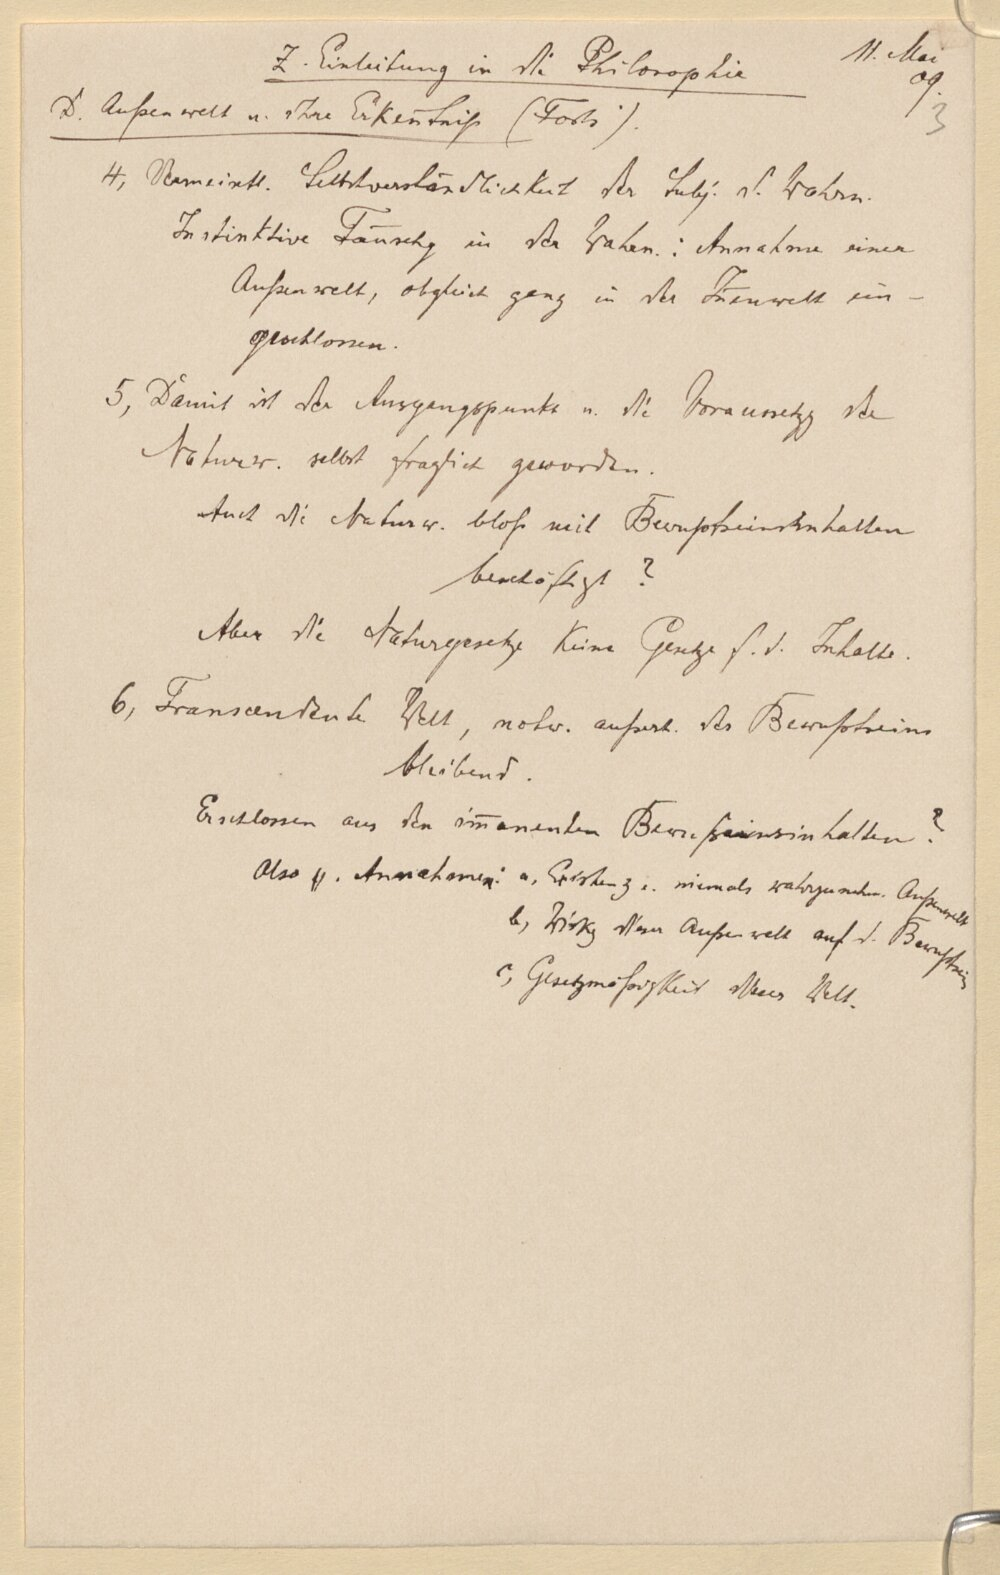 Z. Einleitung in die Philosophie
11. Mai
09.
3
D. Außenwelt u. ihre Erkenntniß (Forts.).
4, Vermeintl. Selbstverständlichkeit der Subj. d. Wahrn.
Instinktive Täuschg in der Wahrn.: Annahme einer
Außenwelt, obgleich ganz in der Innenwelt ein-
geschlossen.
5, Damit ist der Ausgangspunkt u. die Voraussetzg der
Naturw. selbst fraglich geworden.
Auch die Naturw. bloß mit Bewußtseinsinhalten
beschäftigt?
Aber die Naturgesetze keine Gesetze f. d. Inhalte.
6, Transcendente Welt, notw. außerh. des Bewußtseins
bleibend.
Erschlossen aus den im̄anenten Bewußtseinsinhalten?
Also Annahmen: a, Existenz e. niemals wahrzunehm. Außenwelt
b, Wirkg dieser Außenwelt auf d. Bewußtsein
c, Gesetzmäßigkeit dieser Welt.